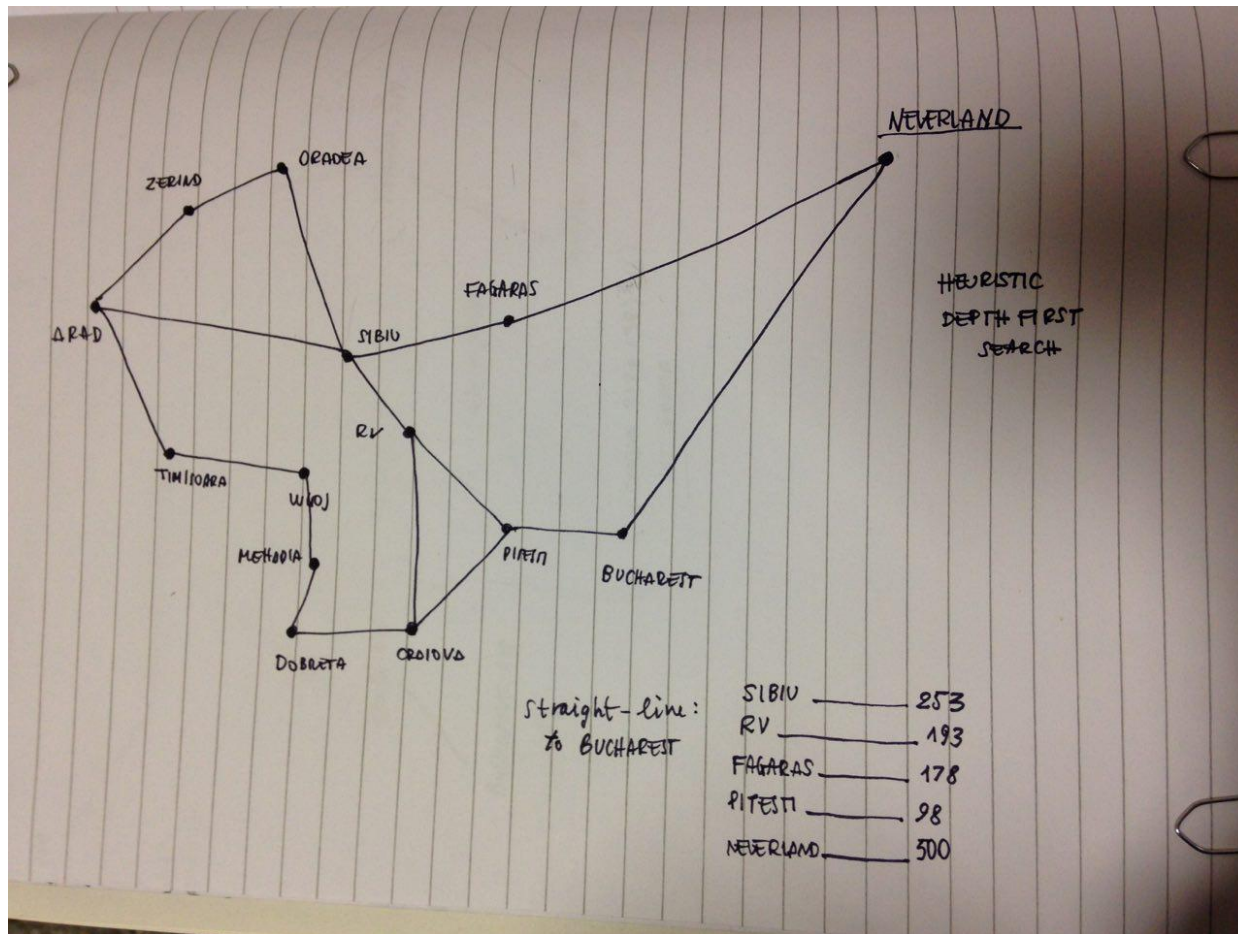 NEVERLAND
ORADEA
ZERIND
FAGARAS
HEURISTIC
DEPTH FIRST
SEARCH
ARAD
SIBIU
RV
TIMISOARA
MEHADIA
PITESTI
BUCHAREST
DOBRETA
CRAIOVA
straight-line:
to BUCHAREST
SIBIU 253
RV 193
FAGARAS 178
PITESTI 98
NEVERLAND 500